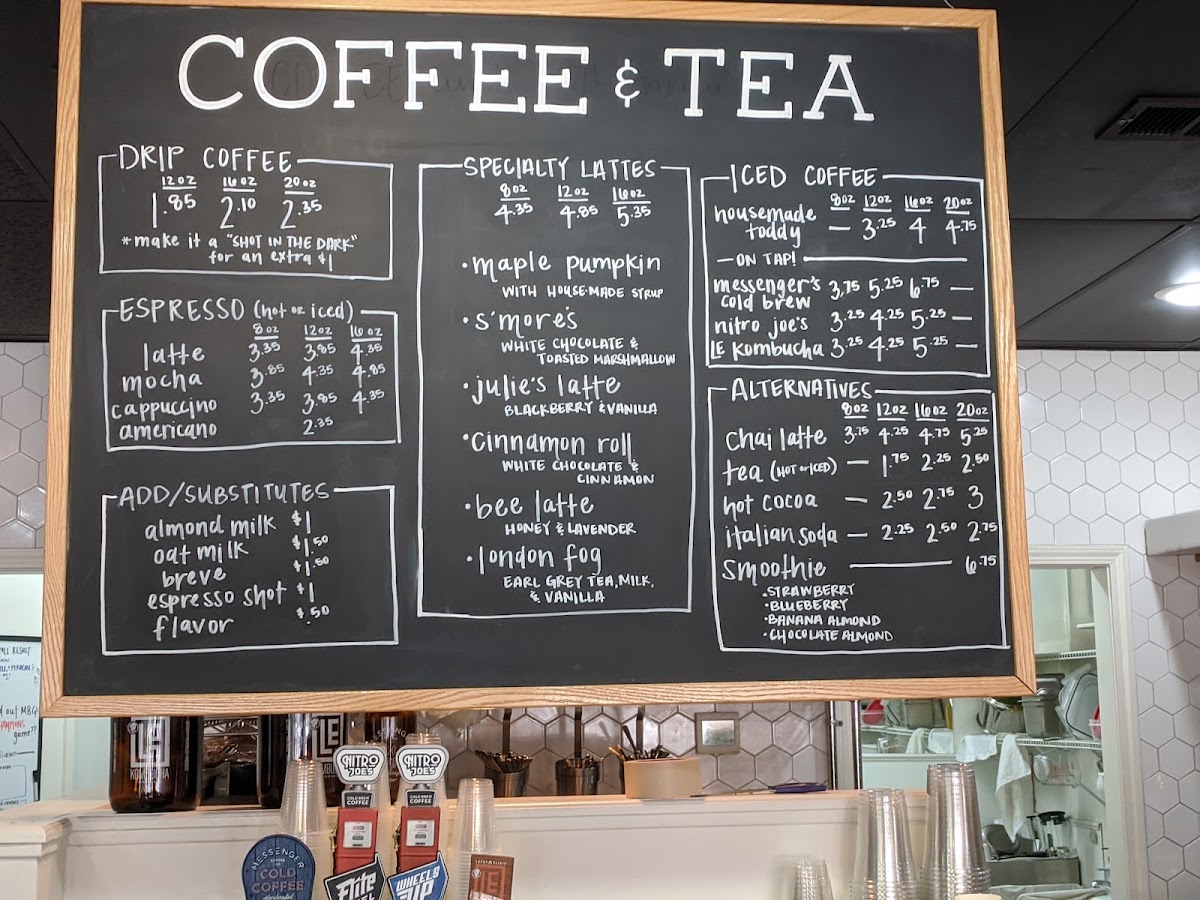 COFFEE & TEA
DRIP COFFEE
12oz 16oz 20oz
1.85 2.10 2.35
*make it a "SHOT IN THE DARK"
for an extra $1
ESPRESSO (hot or iced)
8oz 12oz 16oz
latte 3.35 3.85 4.35
mocha 3.85 4.35 4.85
cappuccino 3.35 3.85 4.35
americano 2.35
ADD/SUBSTITUTES
almond milk $1
oat milk $1.50
breve $1.50
espresso shot $1
flavor $.50
SPECIALTY LATTES
8oz 12oz 16oz
4.35 4.85 5.35
•maple pumpkin
WITH HOUSE-MADE SYRUP
•s'mores
WHITE CHOCOLATE &
TOASTED MARSHMALLOW
•julie's latte
BLACKBERRY & VANILLA
•cinnamon roll
WHITE CHOCOLATE &
CINNAMON
•bee latte
HONEY & LAVENDER
•london fog
EARL GREY TEA, MILK,
& VANILLA
ICED COFFEE
8oz 12oz 16oz 20oz
housemade
toddy — 3.25 4 4.75
—ON TAP!
messenger's
cold brew 3.75 5.25 6.75 —
nitro joe's 3.25 4.25 5.25 —
LE kombucha 3.25 4.25 5.25 —
ALTERNATIVES
8oz 12oz 16oz 20oz
chai latte 3.75 4.25 4.75 5.25
tea (HOT or ICED) — 1.75 2.25 2.50
hot cocoa — 2.50 2.75 3
italian soda — 2.25 2.50 2.75
smoothie — 6.75
•STRAWBERRY
•BLUEBERRY
•BANANA ALMOND
•CHOCOLATE ALMOND
LE
KOMBUCHA
LE
NITRO
JOE'S
COLD BREW
COFFEE
NITRO
JOE'S
COLD BREW
COFFEE
MESSENGER
COFFEE
COLD
COFFEE
Elite
WHEELS
UP
LE